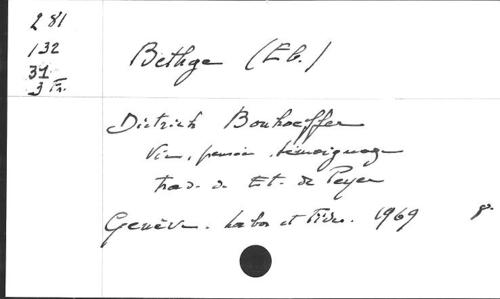 281
132
31
3 Fr.
Bethge (Eb.)
Dietrich Bonhoeffer
Vie, pensée, témoignage
trad. de Et. de Peyer
Genève. Labor et Fides. 1969 8°